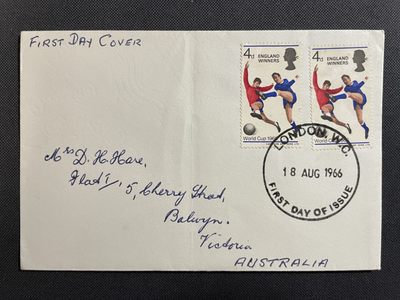 FIRST DAY COVER
4d
ENGLAND
WINNERS
World Cup 1966
4d
ENGLAND
WINNERS
World C
LONDON, W.C.
18 AUG 1966
FIRST DAY OF ISSUE
Mrs. D. H. Hare,
Flat 1, 5, Cherry Road,
Balwyn.
Victoria
AUSTRALIA